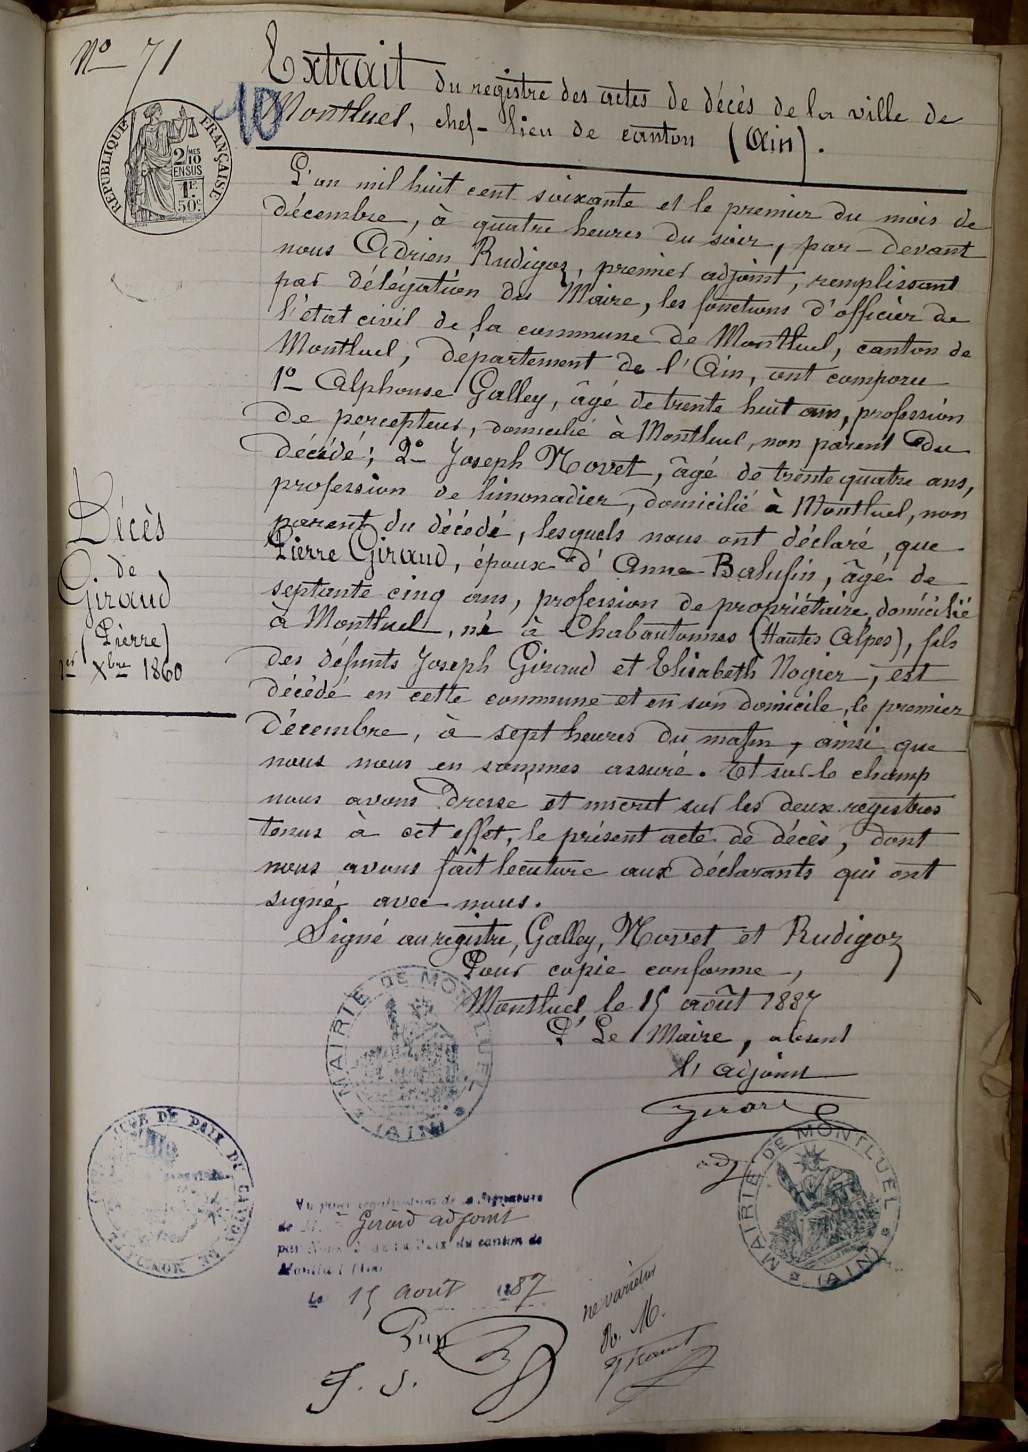 Nº 71
Extrait du registre des actes de décès de la ville de
10
Montluel, chef-lieu de canton (Ain).
RÉPUBLIQUE FRANÇAISE
2 MES
10
EN SUS
1 F.
50 c.
L'an mil huit cent soixante et le premier du mois de
décembre, à quatre heures du soir, par-devant
nous Adrien Rudigoz, premier adjoint, remplissant
par délégation du Maire, les fonctions d'officier de
l'état civil de la commune de Montluel, canton de
Montluel, département de l'Ain, ont comparu
1º Alphonse Galley, âgé de trente huit ans, profession
de percepteur, domicilié à Montluel, non parent du
décédé; 2º Joseph Novet, âgé de trente quatre ans,
profession de limonadier, domicilié à Montluel, non
parent du décédé, lesquels nous ont déclaré, que
Pierre Giraud, époux d'Anne Balufin, âgé de
septante cinq ans, profession de propriétaire, domicilié
à Montluel, né à Chabautonnes (Hautes Alpes), fils
des défunts Joseph Giraud et Elisabeth Nogier, est
décédé en cette commune et en son domicile, le premier
décembre, à sept heures du matin, ainsi que
nous nous en sommes assuré. Et sur le champ
nous avons dressé et inscrit sur les deux registres
tenus à cet effet, le présent acte de décès, dont
nous avons fait lecture aux déclarants qui ont
signé avec nous.
Signé au registre, Galley, Novet et Rudigoz
Pour copie conforme,
Montluel le 15 août 1887
Pr Le Maire, absent
l'adjoint
Girard
adj
Décès
de
Giraud
(Pierre)
1er Xbre 1860
MAIRIE DE MONTLUEL
* (AIN) *
MAIRIE DE MONTLUEL
* (AIN) *
DE PAIX DU CANTON DE MONTLUEL
Vu pour légalisation de la Signature
de M. Girard adjoint
par Nous de la Paix du canton de
Montluel (Ain)
Le 15 août 1887
J. S.
ne varietur